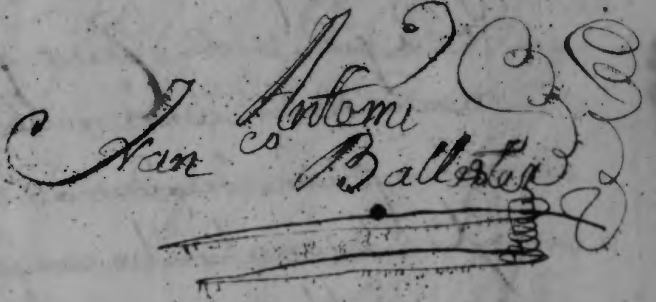 Juan Antoni
Ballester